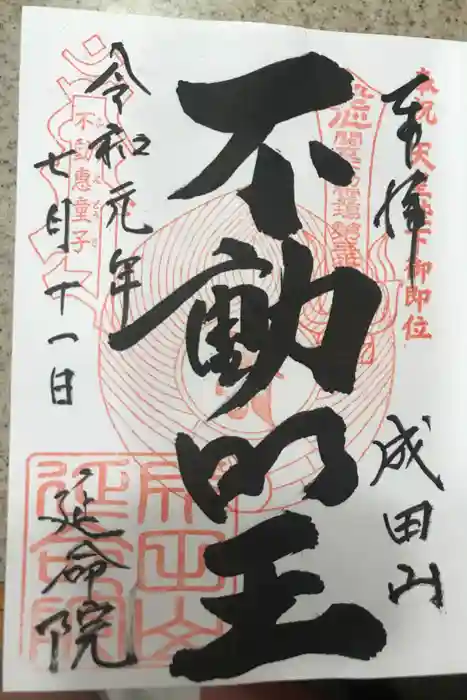 奉祝 天皇陛下御即位
奉拝
成田山
不動明王
令和元年
七月十一日
不動惠童子
延命院